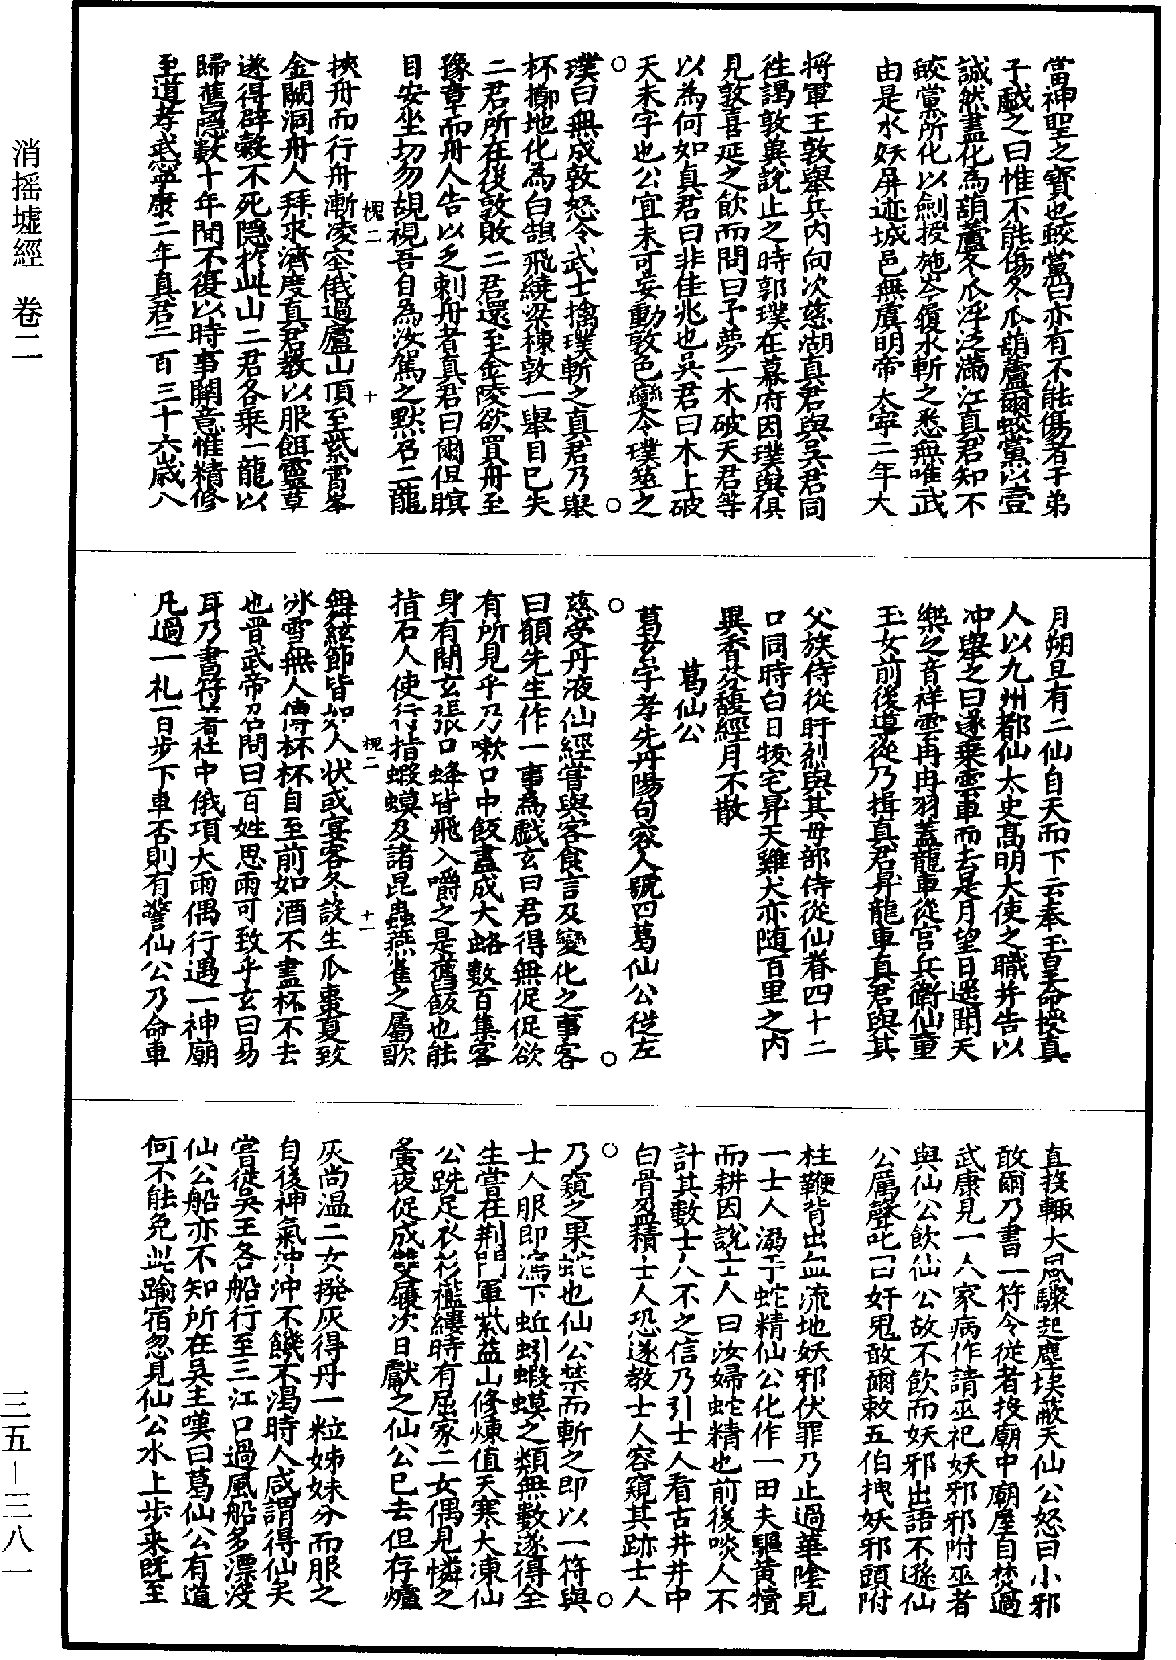 消搖墟經　卷二
三五—三八一
當神聖之寶也蛟黨曰亦有不能傷者乎弟
子戲之曰惟不能傷冬瓜葫蘆爾蛟黨以壹
誠然盡化為葫蘆冬瓜浮泛滿江真君知不
蛟黨所化以劍授施岑履水斬之悉無噍
由是水妖屏迹城邑無虞明帝太寧二年大
將軍王敦舉兵內向次慈湖真君與吳君同
往謁敦冀說止之時郭璞在幕府因璞與俱
見敦喜延之飲而問曰予夢一木破天君等
以為何如真君曰非佳兆也吳君曰木上破
天未字也公宜未可妄動敦色變令璞筮之
璞曰無成敦怒令武士擒璞斬之真君乃舉
杯擲地化為白鵠飛繞梁棟敦一舉目已失
二君所在後敦敗二君還至金陵欲買舟至
豫章而舟人告以乏刺舟者真君曰爾但瞑
目安坐切勿覘視吾自為汝駕之默召二龍
槐二　十
挾舟而行舟漸凌空俄過廬山頂至紫霄峯
金闕洞舟人拜求濟度真君教以服餌靈草
遂得辟穀不死隱於此山二君各乘一龍以
歸舊隱數十年間不復以時事關意惟精修
至道孝武寧康二年真君二百三十六歲八
月朔旦有二仙自天而下云奉玉皇命授真
人以九州都仙太史高明大使之職并告以
冲舉之日遂乘雲車而去是月望日遙聞天
樂之音祥雲冉冉羽蓋龍車從官兵衛仙童
玉女前後導從乃揖真君昇龍車真君與其
父族侍從盱烈與其母部侍從仙眷四十二
口同時白日拔宅昇天雞犬亦隨百里之內
異香芬馥經月不散
葛仙公
葛玄字孝先丹陽句容人號曰葛仙公從左
慈受丹液仙經嘗與客食言及變化之事客
曰願先生作一事為戲玄曰君得無促促欲
有所見乎乃嗽口中飯盡成大蜂數百集客
身有間玄張口蜂皆飛入嚼之是舊飯也能
指石人使行指蝦蟇及諸昆蟲燕雀之屬歌
槐二　十一
舞絃節皆如人狀或宴客冬設生瓜棗夏致
冰雪無人傳杯杯自至前如酒不盡杯不去
也晉武帝召問曰百姓思雨可致乎玄曰易
耳乃書符著社中俄頃大雨偶行遇一神廟
凡過一札百步下車否則有警仙公乃命車
直投輙大風驟起塵埃蔽天仙公怒曰小邪
敢爾乃書一符令從者投廟中廟屋自焚過
武康見一人家病作請巫祀妖邪邪附巫者
與仙公飲仙公故不飲而妖邪出語不遜仙
公厲聲叱曰奸鬼敢爾敕五伯拽妖邪頭附
柱鞭背出血流地妖邪伏罪乃止過華陰見
一士人溺于蛇精仙公化作一田夫驅黃犢
而耕因說士人曰汝婦蛇精也前後啖人不
計其數士人不之信乃引士人看古井井中
白骨盈積士人恐遂教士人容窺其跡士人
乃窺之果蛇也仙公禁而斬之即以一符與
士人服即瀉下蚯蚓蝦蟇之類無數遂得全
生嘗在荆門軍紫蓋山修煉值天寒大凍仙
公跣足衣衫襤縷時有屈家二女偶見憐之
黃夜促成雙屨次日獻之仙公已去但存爐
灰尚溫二女撥灰得丹一粒姊妹分而服之
自後神氣沖沖不饑不渴時人咸謂得仙矣
嘗從吳王各船行至三江口過風船多漂沒
仙公船亦不知所在吳主嘆曰葛仙公有道
何不能免此踰宿忽見仙公水上步來既至